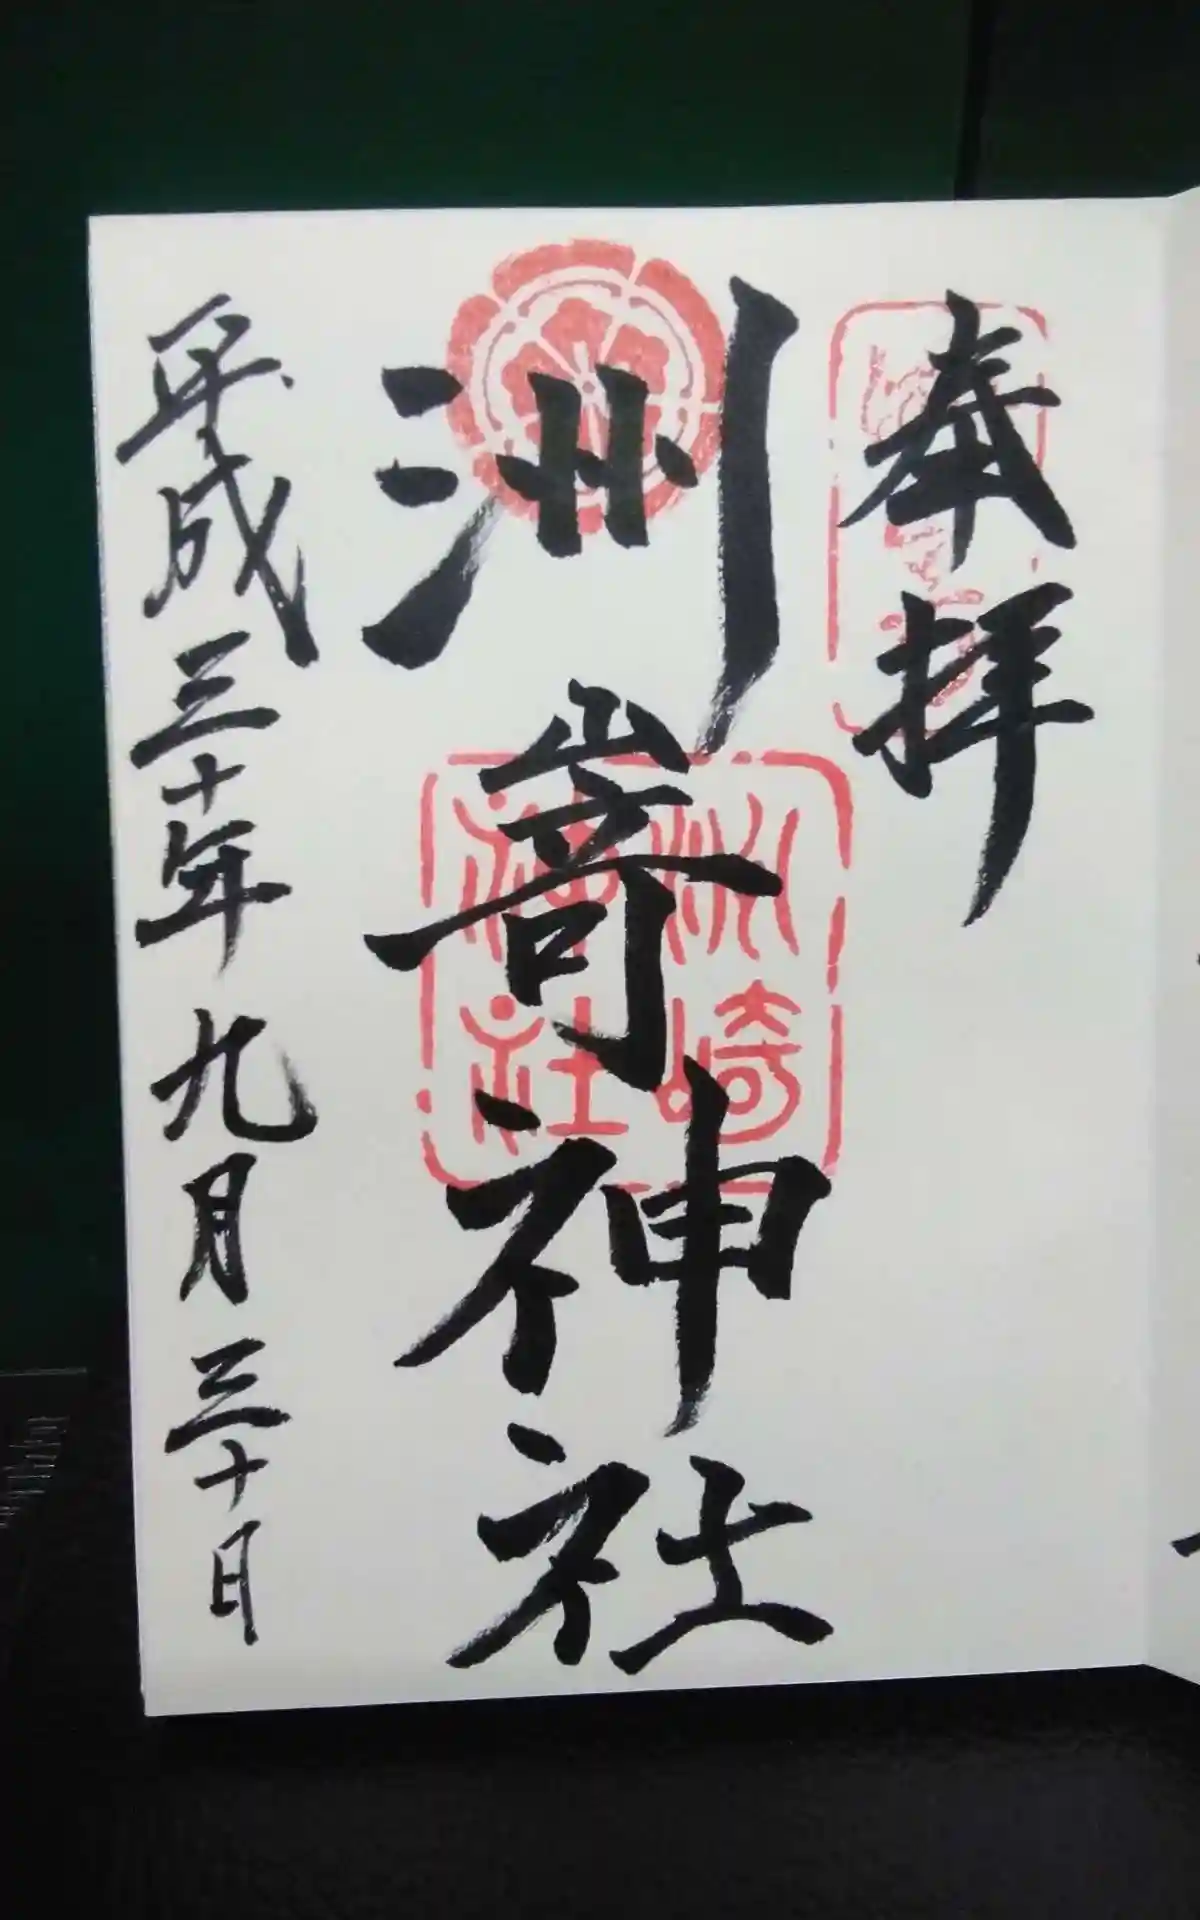 奉拝
洲嵜神社
洲崎
神社
平成三十年九月三十日